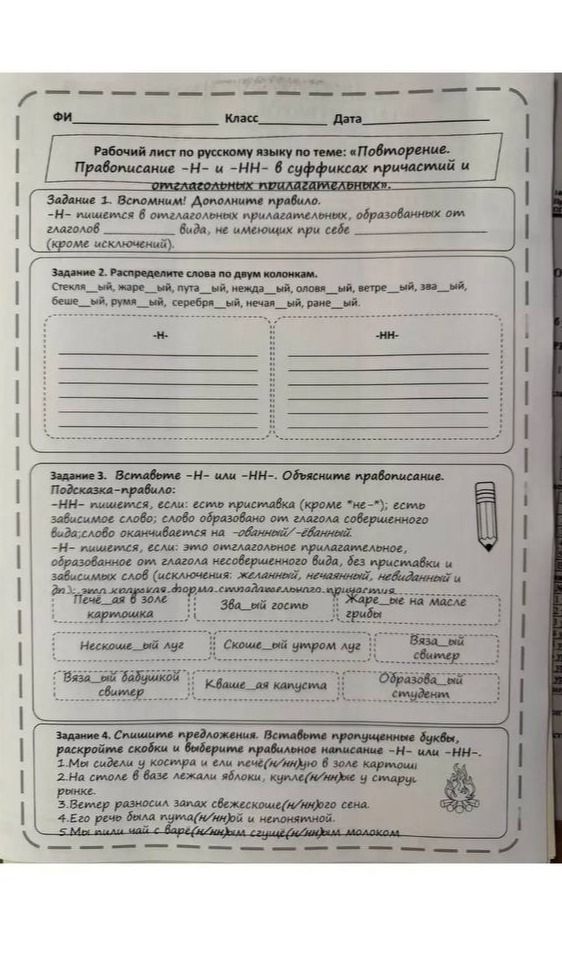 ФИ____________ Класс________ Дата____________
Рабочий лист по русскому языку по теме: «Повторение.
Правописание -Н- и -НН- в суффиксах причастий и
отглагольных прилагательных».
Задание 1. Вспомним! Дополните правило.
-Н- пишется в отглагольных прилагательных, образованных от
глаголов ________ вида, не имеющих при себе ____________
(кроме исключений).
Задание 2. Распределите слова по двум колонкам.
Стекля__ый, жаре__ый, пута__ый, нежда__ый, оловя__ый, ветре__ый, зва__ый,
беше__ый, румя__ый, серебря__ый, нечая__ый, ране__ый.
-Н- -НН-
Задание 3. Вставьте -Н- или -НН-. Объясните правописание.
Подсказка-правило:
-НН- пишется, если: есть приставка (кроме "не-"); есть
зависимое слово; слово образовано от глагола совершенного
вида;слово оканчивается на -ованный/-ёванный.
-Н- пишется, если: это отглагольное прилагательное,
образованное от глагола несовершенного вида, без приставки и
зависимых слов (исключения: желанный, нечаянный, невиданный и
др.); это краткая форма страдательного причастия.
Печё__ая в золе картошка Зва__ый гость Жаре__ые на масле грибы
Нескоше__ый луг Скоше__ый утром луг Вяза__ый свитер
Вяза__ый бабушкой свитер Кваше__ая капуста Образова__ый студент
Задание 4. Спишите предложения. Вставьте пропущенные буквы,
раскройте скобки и выберите правильное написание -Н- или -НН-.
1.Мы сидели у костра и ели печё(н/нн)ую в золе картош
2.На столе в вазе лежали яблоки, купле(н/нн)ые у стару
рынке.
3.Ветер разносил запах свежескоше(н/нн)ого сена.
4.Его речь была пута(н/нн)ой и непонятной.
5.Мы пили чай с варё(н/нн)ым сгущё(н/нн)ым молоком